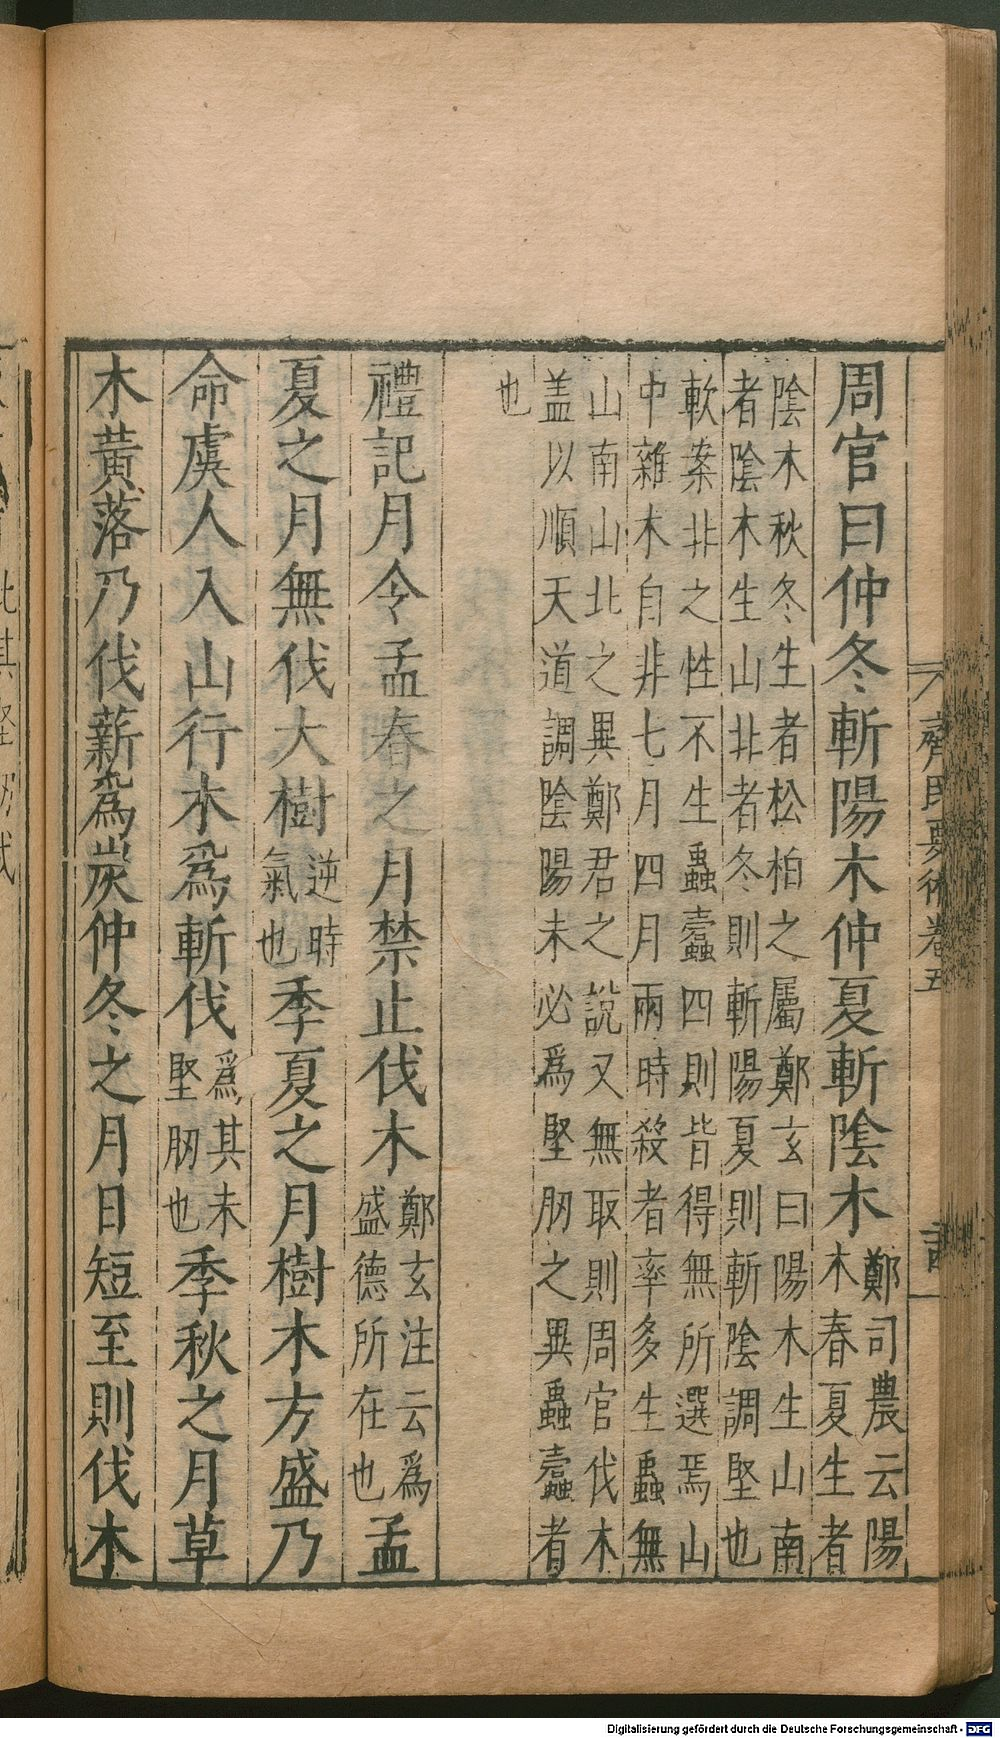 周官曰仲冬斬陽木仲夏斬陰木鄭司農云陽木春夏生者
陰木秋冬生者松柏之屬鄭玄曰陽木生山南
者陰木生山北者冬則斬陽夏則斬陰調堅也
軟案非之性不生蟲蠧四則皆得無所選焉山
中雜木自非七月四月兩時殺者率多生蟲無
山南山北之異鄭君之說又無取則周官伐木
盖以順天道調陰陽未必為堅肕之異蟲蠧者
也
禮記月令孟春之月禁止伐木鄭玄注云為盛德所在也孟
夏之月無伐大樹逆時氣也季夏之月樹木方盛乃
命虞人入山行木為斬伐為其未堅肕也季秋之月草
木黃落乃伐薪為炭仲冬之月日短至則伐木
齊民要術卷五
Digitalisierung gefördert durch die Deutsche Forschungsgemeinschaft - DFG